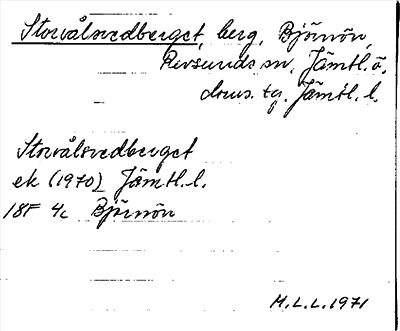 Storvålsvedberget, berg, Björnön,
Revsunds sn, Jämtl. ö.
doms. tg. Jämtl. l.
Storvålsvedberget
ek (1970) Jämtl. l.
18F 4c Björnön
M.L.L. 1971